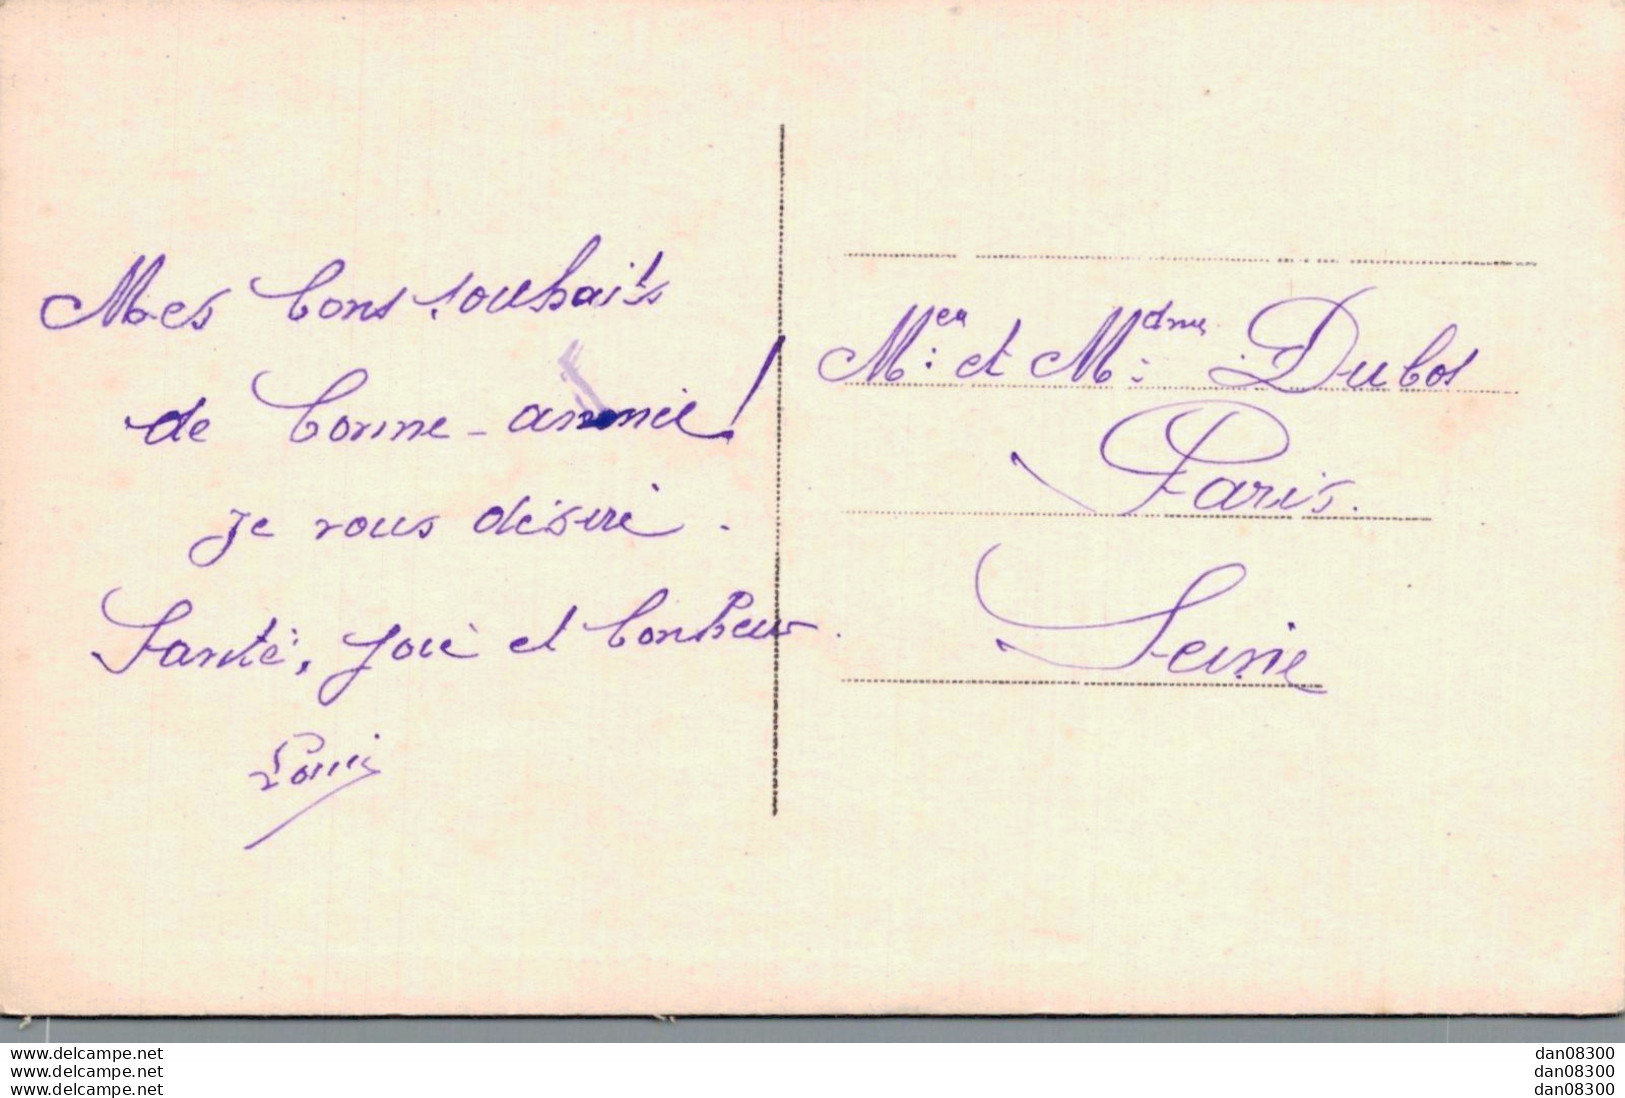 Mes bons souhaits
de bonne-année !
je vous désire.
Santé, joie et bonheur.
Louis
Mer et Mdme Dubos
Paris.
Seine
www.delcampe.net
www.delcampe.net
www.delcampe.net
dan08300
dan08300
dan08300